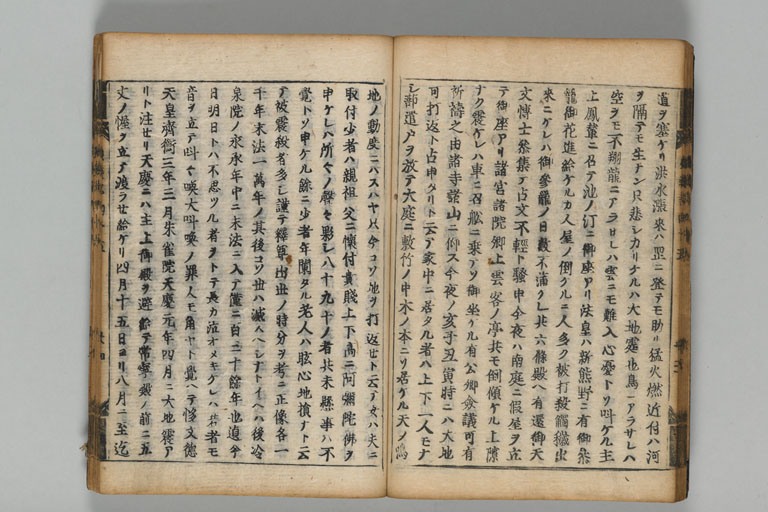 道ヲ塞ケリ洪水漲来ハ罡ニ登テモ助リ猛火燃近付ハ河
ヲ隔テモ生ナン只悲シカリケルハ大地震也鳥ニアラサレハ
空ヲモ不翔龍ニアラサレハ雲ニモ難入心憂トソ叫ケル主
上鳳輦ニ召テ池ノ汀ニ御座アリ法皇ハ新熊野ニ有御参
籠御花進給ケルカ人屋ノ倒ケルニ人多ク被打殺觸穢出
来ニケレハ御参籠ノ日数不満シテ六條殿ヘ有還御天
文博士参集テ占文不軽ト騒申今夜ハ南庭ニ假屋ヲ立
テ御座アリ諸宮諸院卿上雲客ノ亭共モ倒傾ケル上隙
ナク震ケレハ車ニ召舩ニ乗テソ御坐ケル有公卿僉議可有
祈禱之由諸寺諸山ニ仰ス今夜ノ亥子丑寅時ニハ大地
可打返ト占申タリト云テ家中ニ居タル者ハ上下一人モナ
シ蔀遣戸ヲ放テ大庭ニ敷竹ノ中木ノ本ニソ居ケル天ノ鳴
地ノ動度ニハスハヤ只今コソ地ヲ打返セト云テ女ハ夫ニ
取付少者ハ親祖父ニ懐付貴賤上下高ニ阿弥陀佛ヲ
申ケレハ所々ノ聲々影シ八十九十ノ者共未懸事ハ不
覺トソ申ケル餘ニ少者年闌タル老人ハ眩心地損ナト云
テ被震殺者多シ謹テ釋尊出世ノ時分ヲ考ニ正像各一
千年末法一萬年ノ其後コソ世ハ滅ヘシナトイヘハ後冷
泉院ノ永承年中ニ末法ニ入テ僅ニ百三十餘年也追今
日明日トハ不思ツル者ヲトテ長カ泣オメキケレハ若者モ
音ヲ立テ叫ケ喚大叫喚ノ罪人モ角ヤト覺ヘテ怪文徳
天皇齊衡三年三月朱雀院天慶元年四月ニ大地震ア
リト注セリ天慶ニハ主上御殿ヲ避給テ常寧殿ノ前ニ五
丈ノ幄ヲ立テ渡ラセ給ケリ四月十五日ヨリ八月ニ至迄